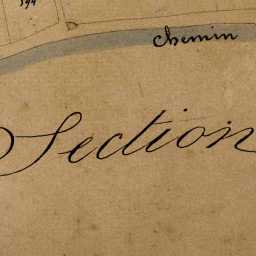 Chemin
Section